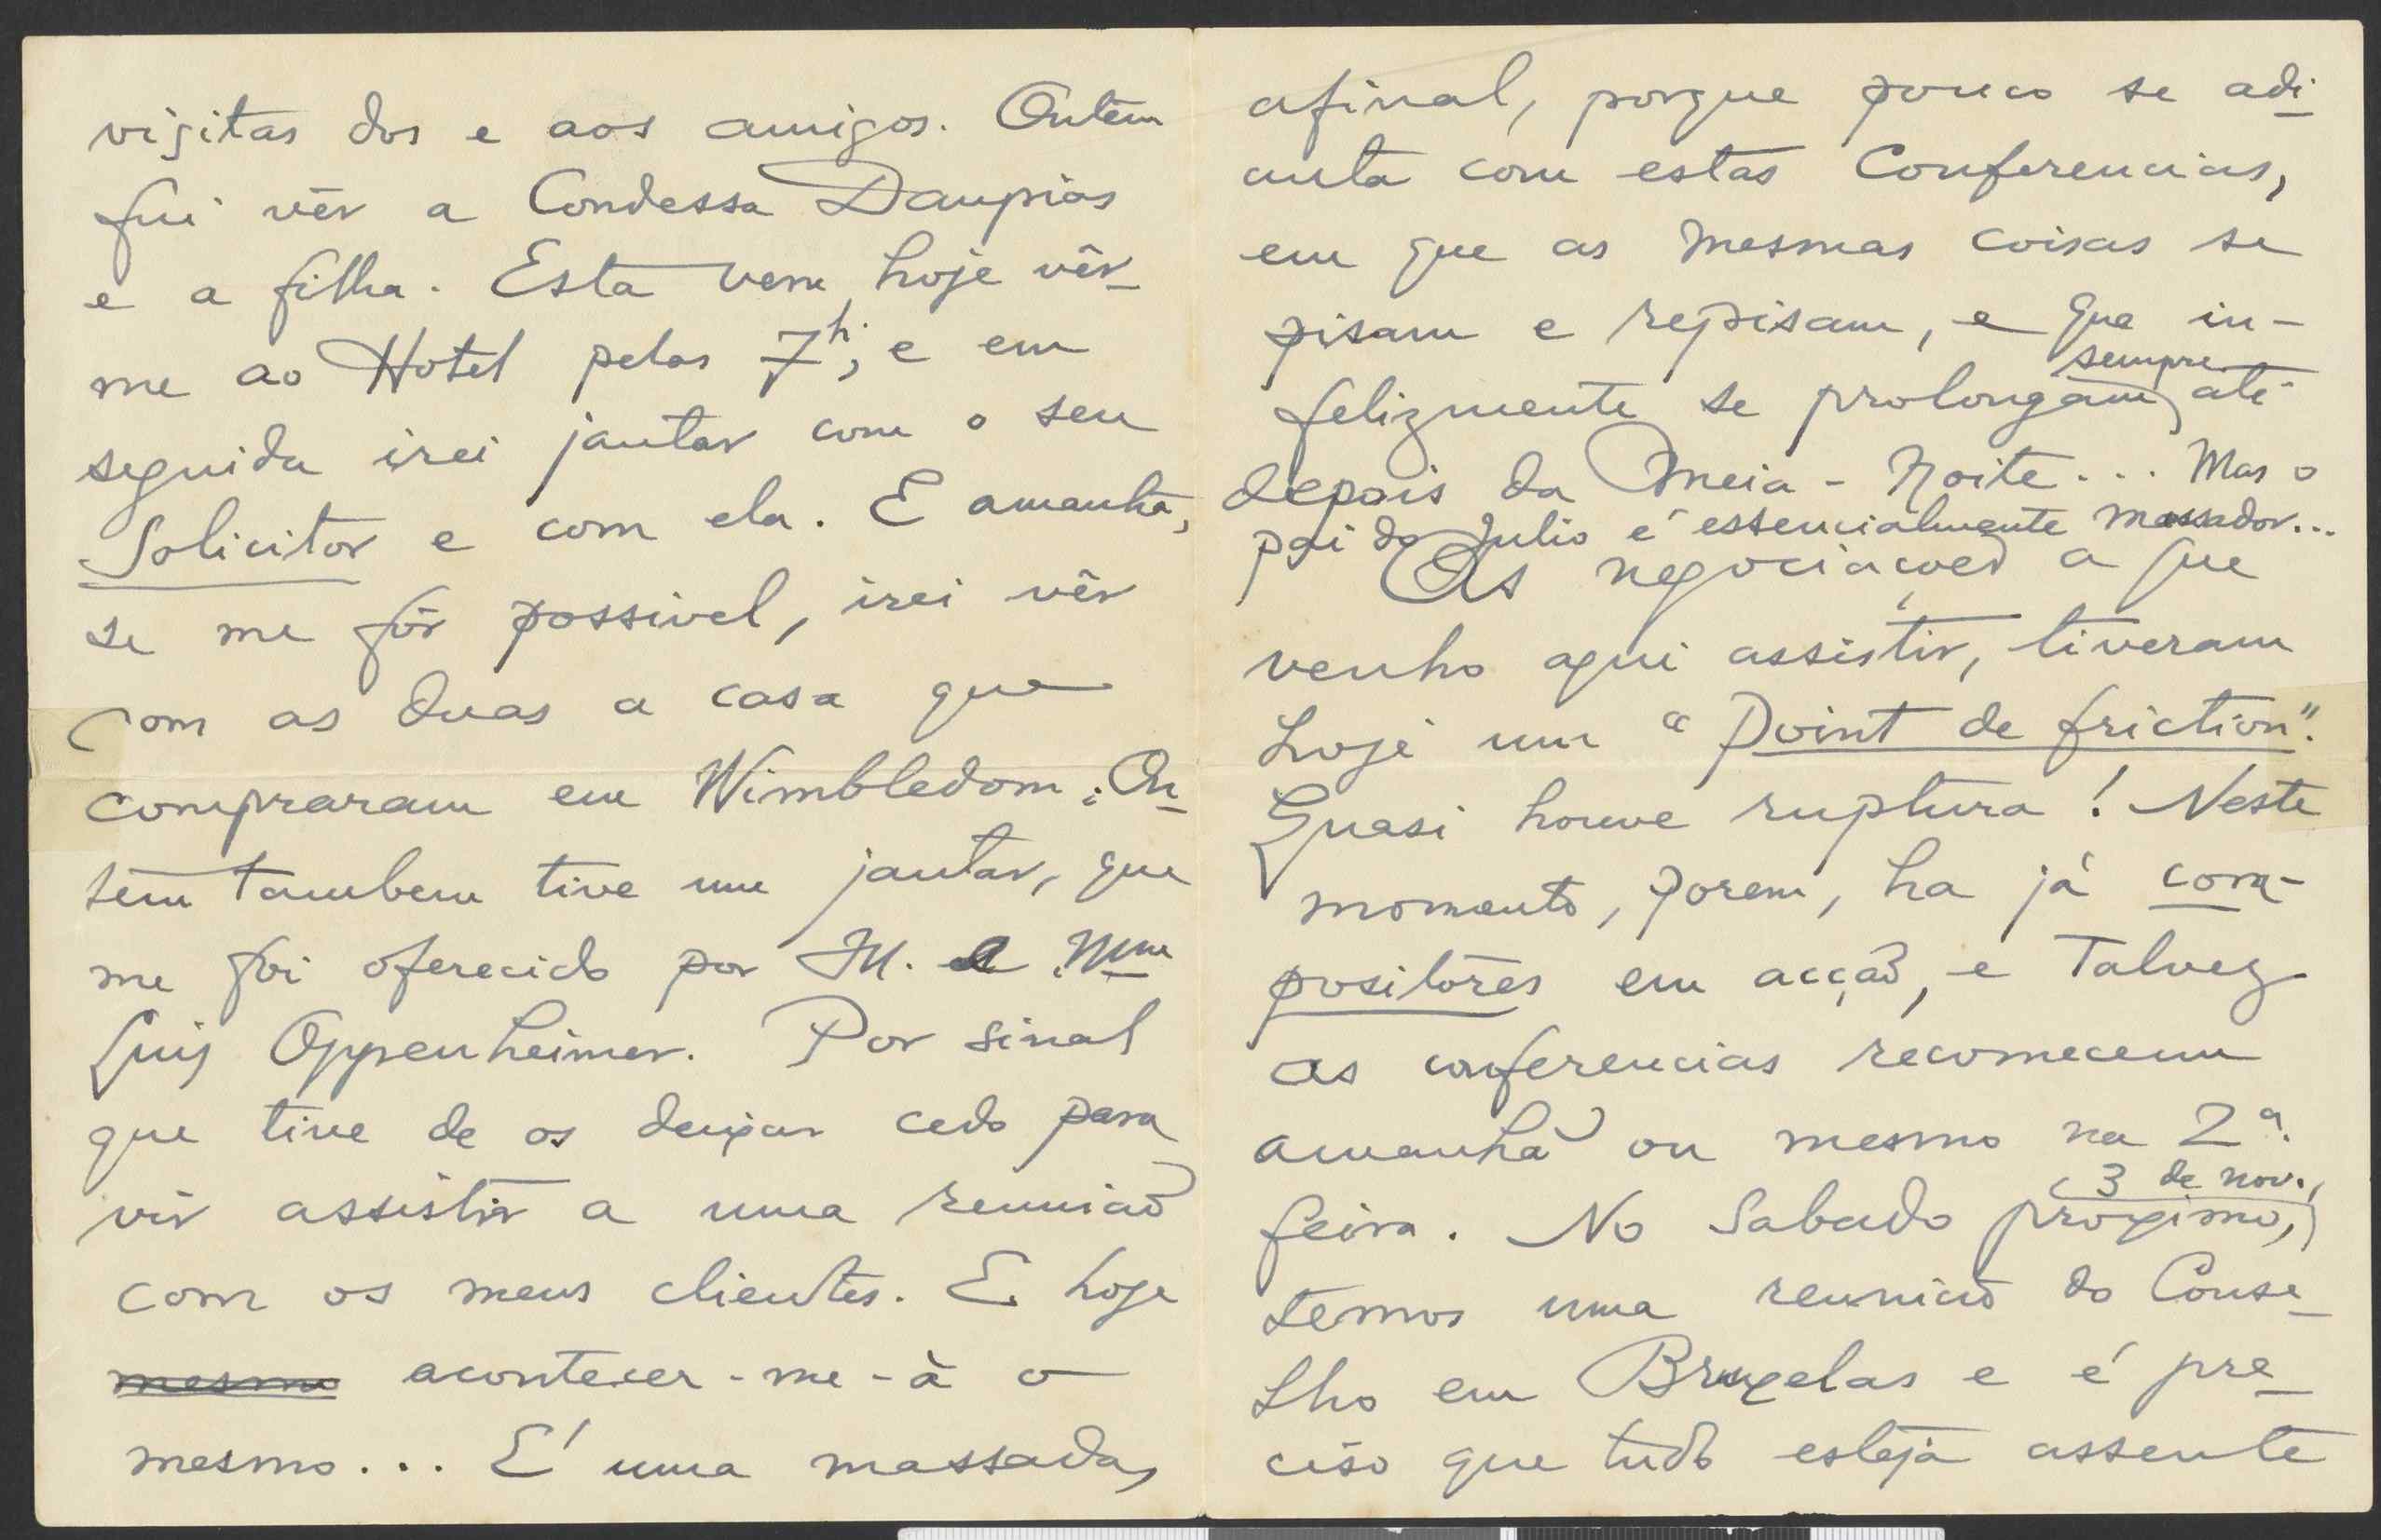 visitas dos e aos amigos. Ontem
fui vêr a Condessa Daupias
e a filha. Esta vem hoje vêr-
me ao Hotel pelas 7h; e em
seguida irei jantar com o seu
Solicitor e com ela. E amanhã,
se me fôr possivel, irei vêr
com as duas a casa que
compraram em Wimbledom. On-
tem tambem tive um jantar, que
me foi oferecido por M. e Mme
Luiz Oppenheimer. Por sinal
que tive de os deixar cedo para
vir assistir a uma reunião
com os meus clientes. E hoje
mesmo acontecer-me-à o
mesmo... E' uma massada,
afinal, porque pouco se adi-
anta com estas Conferencias,
em que as mesmas coisas se
pisam e repisam, e que in-
felizmente se prolongam sempre até
depois da Meia-Noite... Mas o
pai do Julio é essencialmente massador...
As negociações a que
venho aqui assistir, tiveram
hoje um "Point de friction".
Quasi houve ruptura! Neste
momento, porem, ha já com-
positores em acção, e talvez
as conferencias recomecem
amanhã ou mesmo na 2ª.
feira. No Sabado proximo, 3 de nov.,
temos uma reunião do Conse-
lho em Bruxelas e é pre-
ciso que tudo esteja assente